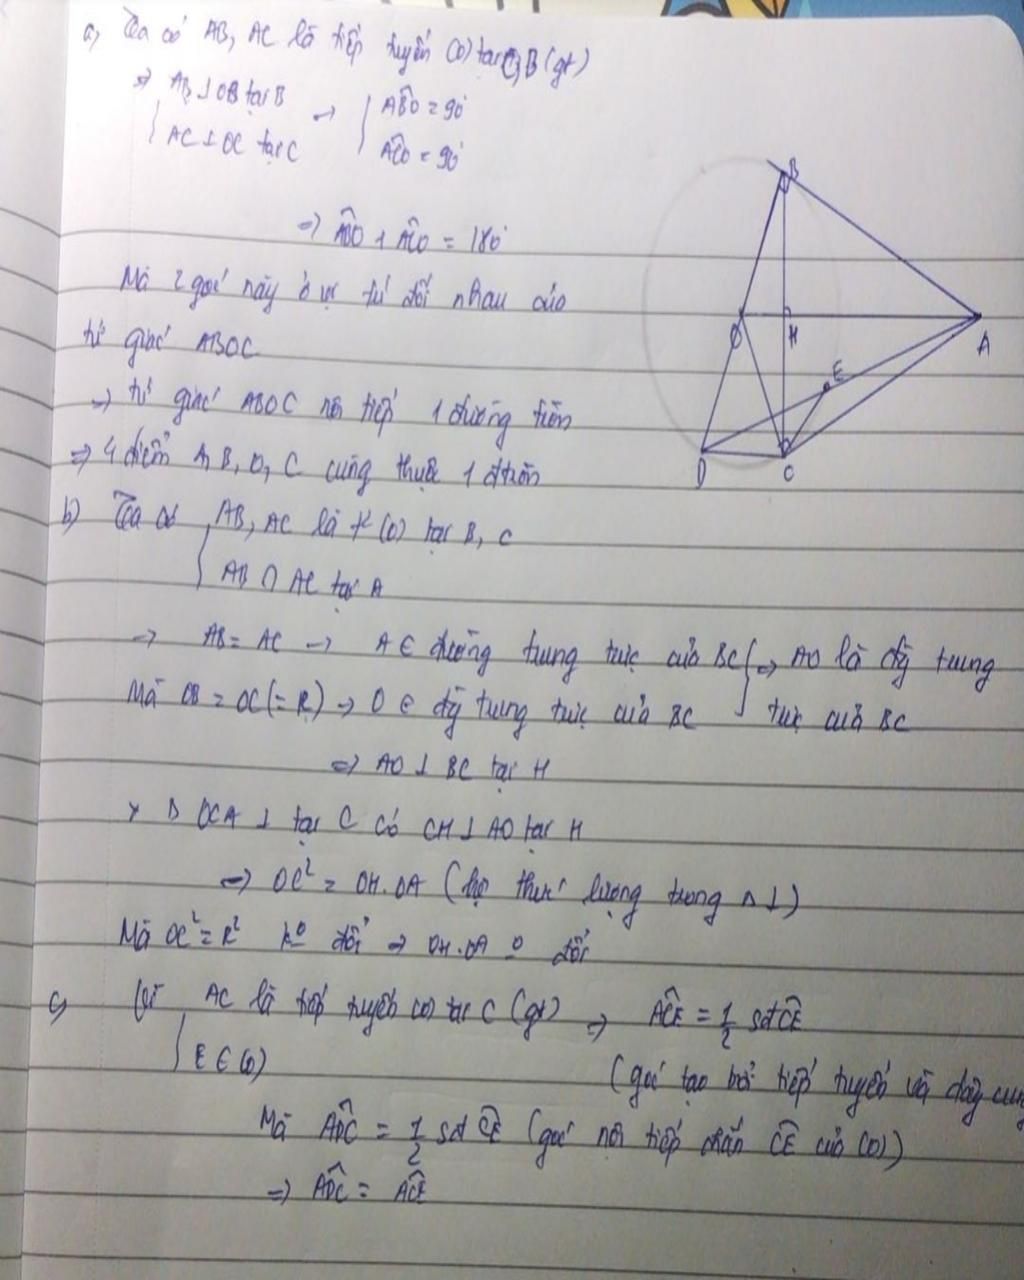 a, Ta có AB, AC là tiếp tuyến (O) tại C, B (gt)
=> AB ⊥ OB tại B
AC ⊥ OC tại C
→ ABO = 90°
ACO = 90°
=> ABO + ACO = 180°
Mà 2 góc này ở vị trí đối nhau của
tứ giác ABOC
=> tứ giác ABOC nội tiếp 1 đường tròn
=> 4 điểm A, B, O, C cùng thuộc 1 đtròn
b) Ta có AB, AC là t² (O) tại B, C
AB ∩ AC tại A
=> AB = AC → A ∈ đường trung trực của BC => AO là đg trung
Mà OB = OC (= R) → O ∈ đg trung trực của BC trực của BC
=> AO ⊥ BC tại H
x Δ OCA ⊥ tại C có CH ⊥ AO tại H
=> OC² = OH.OA (hệ thức lượng trong Δ ⊥)
Mà OC² = R² ko đổi => OH.OA o đổi
c, Vì AC là tiếp tuyến (O) tại C (gt) => ACE = 1/2 sđ CE
E ∈ (O)
(góc tạo bởi tiếp tuyến và dây cung
Mà ADC = 1/2 sđ CE (góc nội tiếp chắn CE của (O))
=> ADC = ACE
B
O
H
A
E
D
C